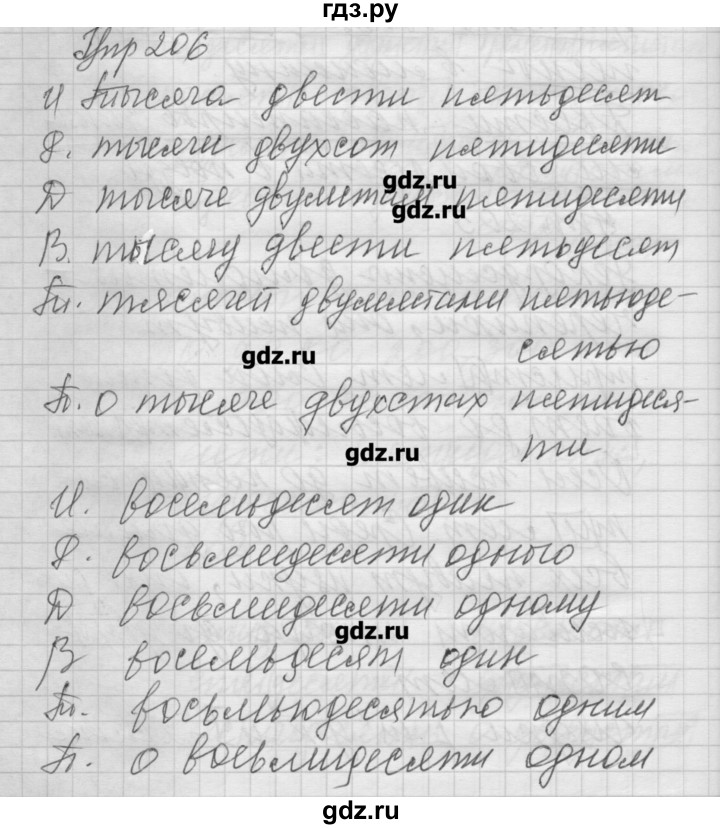 гдз.ру
Упр 206
И тысяча двести пятьдесят
Р. тысячи двухсот пятидесяти
gdz.ru
Д тысяче двумстам пятидесяти
gdz.ru
В. тысячу двести пятьдесят
Тп. тысячей двумястами пятьюде-
gdz.ru
сятью
П. о тысяче двухстах пятидеся-
gdz.ru
ти
И. восемьдесят один
Р. восьмидесяти одного
Д восьмидесяти одному
gdz.ru
В восемьдесят один
Тп. восьмьюдесятью одним
П. о восьмидесяти одном
gdz.ru